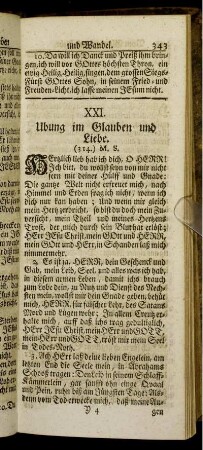 und Wandel. 343
10. Da will ich Danck und Preiß ihm brin-
gen, ich will vor GOttes höchsten Thron, ein
ewig Heilig, Heilig, singen, dem grossen Sieges-
Fürst GOttes Sohn, in seinem Fried- und
Freuden-Licht. Ich lasse meinen JEsum nicht.
XXI.
Ubung im Glauben und
Liebe.
(214.) M. S.
HErtzlich lieb hab ich dich, O HERR!
Ich bitt, du wollst seyn von mir nicht
fern mit deiner Hülff und Gnade:
Die gantze Welt nicht erfreuet mich, nach
Himmel und Erden frag ich nicht, wenn ich
dich nur kan haben; Und wenn mir gleich
mein Hertz zerbricht, so bist du doch mein Zu-
versicht, mein Theil und meines Hertzens
Trost, der mich durch sein Blut hat erlößt;
HErr JEsu Christ, mein GOtt und HErr,
mein GOtt und HErr, in Schanden laß mich
nimmermehr.
2. Es ist ja, HERR, dein Geschenck und
Gab, mein Leib, Seel, und alles was ich hab,
in diesem armen Leben, damit ichs brauch
zum Lobe dein, zu Nutz und Dienst des Nech-
sten mein, wollst mir dein Gnade geben, behüt
mich, HERR, für falscher Lehr, des Satans
Mord und Lügen wehr; In allem Creutz er-
halte mich, auff daß ichs trag gedultiglich,
HErr JEsu Christ, mein HErr und GOTT,
mein HErr und GOTT, tröst mir mein Seel
in Todes-Noth.
3. Ach HErr laß deine lieben Engelein, am
letzten End die Seele mein, in Abrahams
Schooß tragen: Den Leib in seinem Schlaff-
Kämmerlein, gar sanfft ohn einge Quaal
und Pein, ruhn biß am Jüngsten Tage: Als-
denn vom Tod erwecke mich, daß meine Au-
P 4 gen